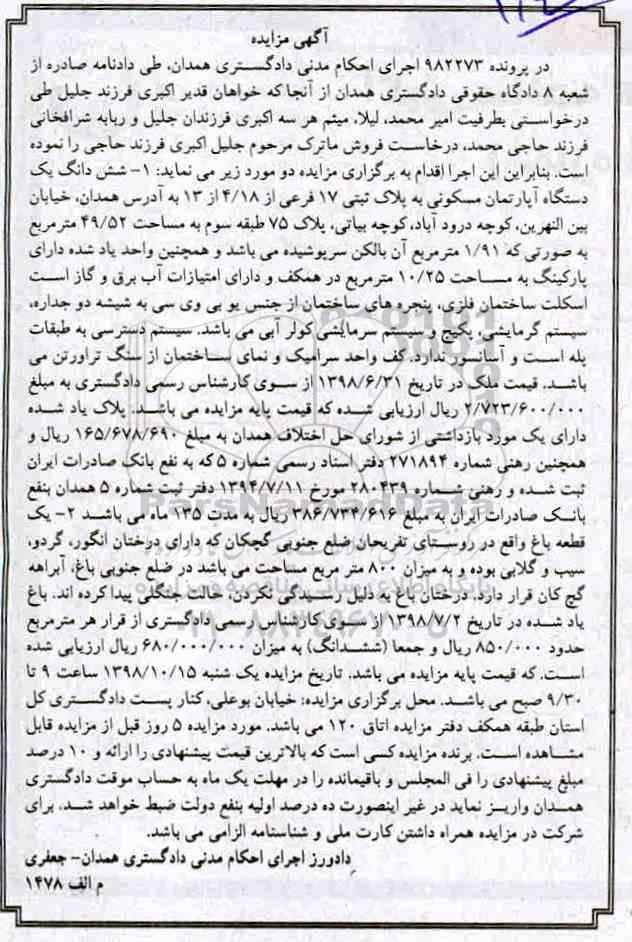 آگهی مزایده
در پرونده ۹۸۲۲۷۳ اجرای احکام مدنی دادگستری همدان، طی دادنامه صادره از
شعبه ۸ دادگاه حقوقی دادگستری همدان از آنجا که خواهان قدیر اکبری فرزند جلیل طی
درخواستی بطرفیت امیر محمد، لیلا، میثم هر سه اکبری فرزندان جلیل و ربابه شرافخانی
فرزند حاجی محمد، درخاست فروش ماترک مرحوم جلیل اکبری فرزند حاجی را نموده
است. بنابراین این اجرا اقدام به برگزاری مزایده دو مورد زیر می نماید: ۱- شش دانگ یک
دستگاه آپارتمان مسکونی به پلاک ثبتی ۱۷ فرعی از ۴/۱۸ از ۱۳ به آدرس همدان، خیابان
بین النهرین، کوچه درود آباد، کوچه بیاتی، پلاک ۷۵ طبقه سوم به مساحت ۴۹/۵۲ مترمربع
به صورتی که ۱/۹۱ مترمربع آن بالکن سرپوشیده می باشد و همچنین واحد یاد شده دارای
پارکینگ به مساحت ۱۰/۲۵ مترمربع در همکف و دارای امتیازات آب برق و گاز است
اسکلت ساختمان فلزی، پنجره های ساختمان از جنس یو بی وی سی به شیشه دو جداره،
سیستم گرمایشی، پکیج و سیستم سرمایشی کولر آبی می باشد. سیستم دسترسی به طبقات
پله است و آسانسور ندارد. کف واحد سرامیک و نمای ساختمان از سنگ تراورتن می
باشد. قیمت ملک در تاریخ ۱۳۹۸/۶/۳۱ از سوی کارشناس رسمی دادگستری به مبلغ
۲/۷۲۳/۶۰۰/۰۰۰ ریال ارزیابی شده که قیمت پایه مزایده می باشد. پلاک یاد شده
دارای یک مورد بازداشتی از شورای حل اختلاف همدان به مبلغ ۱۶۵/۶۷۸/۶۹۰ ریال و
همچنین رهنی شماره ۲۷۱۸۹۴ دفتر اسناد رسمی شماره ۵ که به نفع بانک صادرات ایران
ثبت شده و رهنی شماره ۲۸۰۴۳۹ مورخ ۱۳۹۴/۷/۱۱ دفتر ثبت شماره ۵ همدان بنفع
بانک صادرات ایران به مبلغ ۳۸۶/۷۳۴/۶۱۶ ریال به مدت ۱۳۵ ماه می باشد ۲- یک
قطعه باغ واقع در روستای تفریجان ضلع جنوبی گچکان که دارای درختان انگور، گردو،
سیب و گلابی بوده و به میزان ۸۰۰ متر مربع مساحت می باشد در ضلع جنوبی باغ، آبراهه
گچ کان قرار دارد. درختان باغ به دلیل رسیدگی نکردن، حالت جنگلی پیدا کرده اند. باغ
یاد شده در تاریخ ۱۳۹۸/۷/۲ از سوی کارشناس رسمی دادگستری از قرار هر مترمربع
حدود ۸۵۰/۰۰۰ ریال و جمعا (ششدانگ) به میزان ۶۸۰/۰۰۰/۰۰۰ ریال ارزیابی شده
است. که قیمت پایه مزایده می باشد. تاریخ مزایده یک شنبه ۱۳۹۸/۱۰/۱۵ ساعت ۹ تا
۹/۳۰ صبح می باشد. محل برگزاری مزایده: خیابان بوعلی، کنار پست دادگستری کل
استان طبقه همکف دفتر مزایده اتاق ۱۲۰ می باشد. مورد مزایده ۵ روز قبل از مزایده قابل
مشاهده است. برنده مزایده کسی است که بالاترین قیمت پیشنهادی را ارائه و ۱۰ درصد
مبلغ پیشنهادی را فی المجلس و باقیمانده را در مهلت یک ماه به حساب موقت دادگستری
همدان واریز نماید در غیر اینصورت ده درصد اولیه بنفع دولت ضبط خواهد شد. برای
شرکت در مزایده همراه داشتن کارت ملی و شناسنامه الزامی می باشد.
دادورز اجرای احکام مدنی دادگستری همدان- جعفری
م الف ۱۴۷۸
ParsNamadData